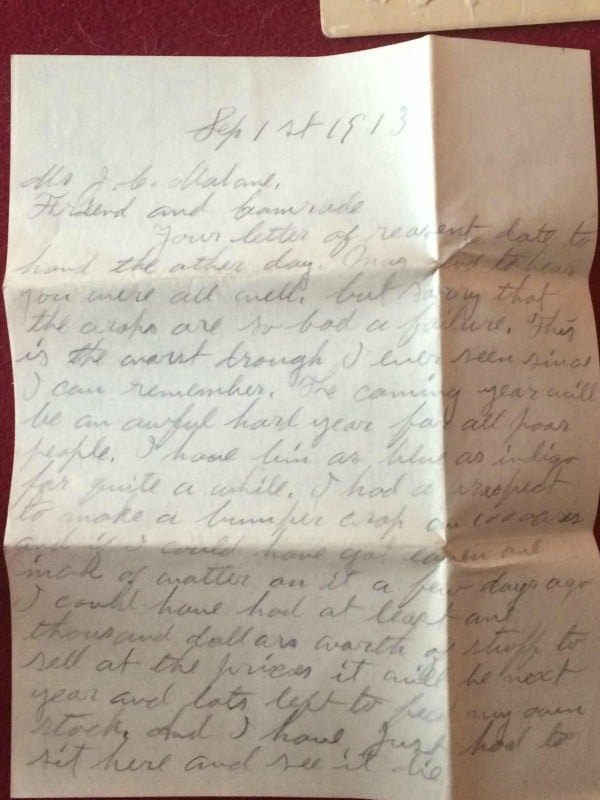 Sep 1st 1913
Mr J. C. Malane.
Friend and Comrade
Your letter of reasent date to
hand the other day. Was glad to hear
you were all well. but sorry that
the crops are so bad a failure. This
is the worst drough I ever seen since
I can remember. The coming year will
be an awful hard year for all poor
people. I have bin as blue as indigo
for quite a while. I had a prospect
to make a bumper crop on acres
and if I could have got even one
inch of watter on it a few days ago
I could have had at least one
thousand dollars worth of stuff to
sell at the prices it will be next
year and lots left to feed my own
stock. and I have just had to
sit here and see it die